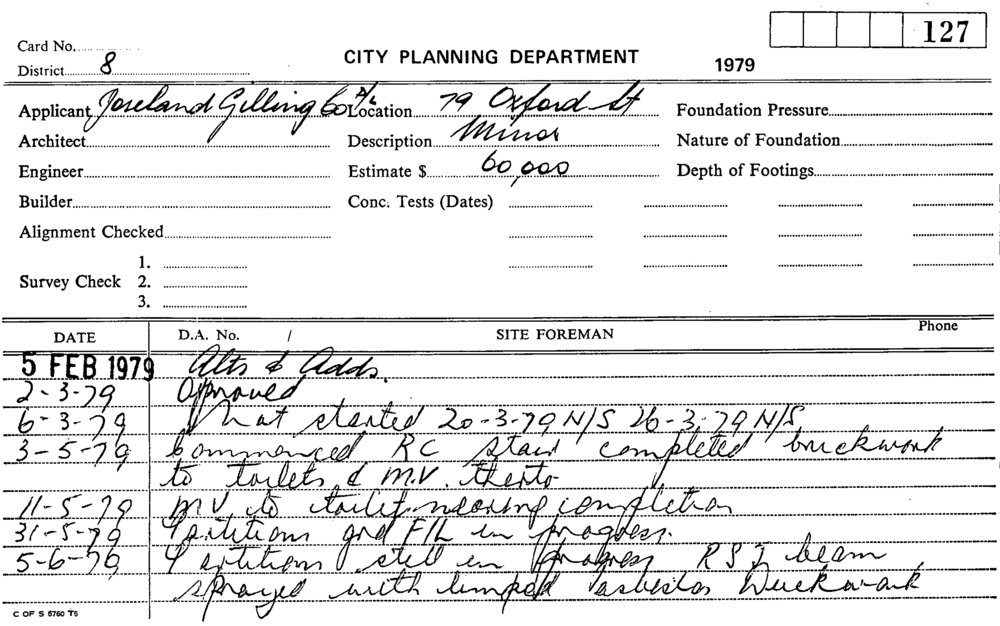 127
Card No.
CITY PLANNING DEPARTMENT
1979
District 8
Applicant Joseland Gilling Co P/L Location 79 Oxford St Foundation Pressure
Architect Description Minor Nature of Foundation
Engineer Estimate $ 60,000 Depth of Footings
Builder Conc. Tests (Dates)
Alignment Checked
1.
Survey Check 2.
3.
DATE D.A. No. / SITE FOREMAN Phone
5 FEB 1979 Alts & Adds.
2-3-79 Approved
6-3-79 Not started 20-3-79 N/S 26-3-79 N/S
3-5-79 Commenced RC stair completed brickwork
to toilets & M.V. therto
11-5-79 M.V. to toilet nearing completion
31-5-79 Partitions grd F/L in progress.
5-6-79 Partitions still in progress RSJ beam
sprayed with limped asbestos Duckwork
C OF S 5760 T5